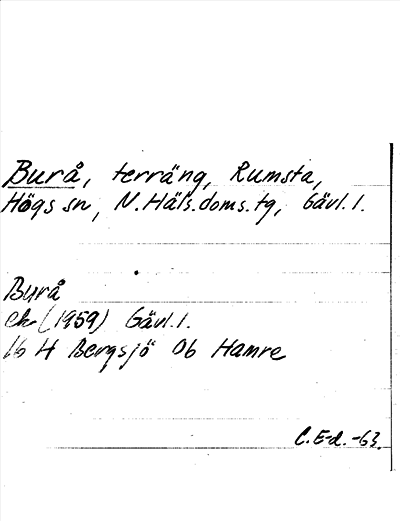 Burå, terräng, Rumsta,
Högs sn, N.Häls.doms.tg, Gävl.l.
Burå
ek (1959) Gävl.l.
16 H Bergsjö 06 Hamre
C.E-d.-63.